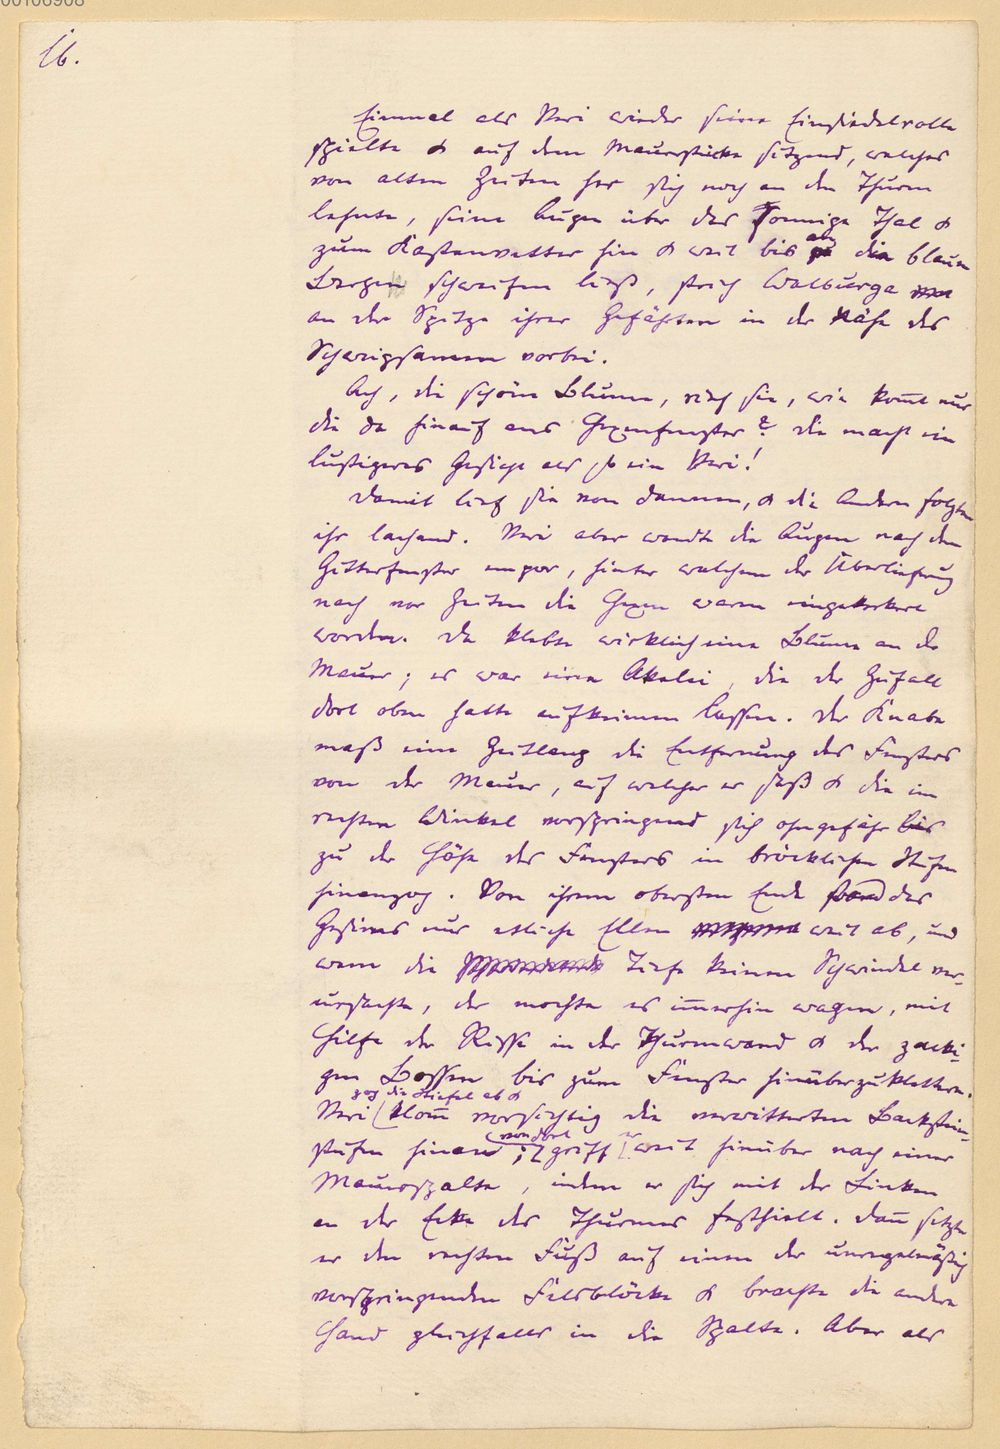 00106908
16.
Einmal als Veri wieder seine Einsiedelrolle
spielte & auf dem Mauerstücke sitzend, welches
von alten Zeiten her sich noch an den Thurm
lehnte, seine Augen über das sonnige Thal &
zum Kastenvetter hin & weit bis an die blauen
Bergen schweifen ließ, strich Walburga
an der Spitze ihrer Gefährten in der Nähe des
Schweigsamen vorbei.
Ach, die schöne Blume, rief sie, wie kom̅t nur
die da hinauf ans Hexenfenster? Die macht ein
lustigeres Gesicht als so ein Veri!
Damit lief sie von dannen, & die Andern folgten
ihr lachend. Veri aber wandte die Augen nach dem
Gitterfenster empor, hinter welchem der Überlieferung
nach vor Zeiten die Hexen waren eingekerkert
worden. Da klebte wirklich eine Blume an der
Mauer; es war eine Akelei, die der Zufall
dort oben hatte aufkeimen lassen. Der Knabe
maß eine Zeitlang die Entfernung des Fensters
von der Mauer, auf welcher er saß & die im
rechten Winkel vorspringend sich ohngefähr bis
zu der Höhe des Fensters in bröcklichen Stufen
hinanzog. Von ihrem obersten Ende stand das
Gesimse nur etliche Ellen weit ab, und
wem die Tiefe keinen Schwindel ver-
ursachte, der mochte es im̅erhin wagen, mit
Hilfe der Risse in der Thurmwand & der zacki-
gen Bossen bis zum Fenster hinüberzuklettern.
zog die Stiefel ab &
Veri klom̅ vorsichtig die verwitterten Backstein-
stufen hinan; von dort griff er weit hinüber nach einer
Mauerspalte, indem er sich mit der Linken
an der Ecke des Thurmes festhielt. Dan̅ setzte
er den rechten Fuß auf einen der unregelmäßig
vorspringenden Felsblöcke & brachte die andere
Hand gleichfalls in die Spalte. Aber als